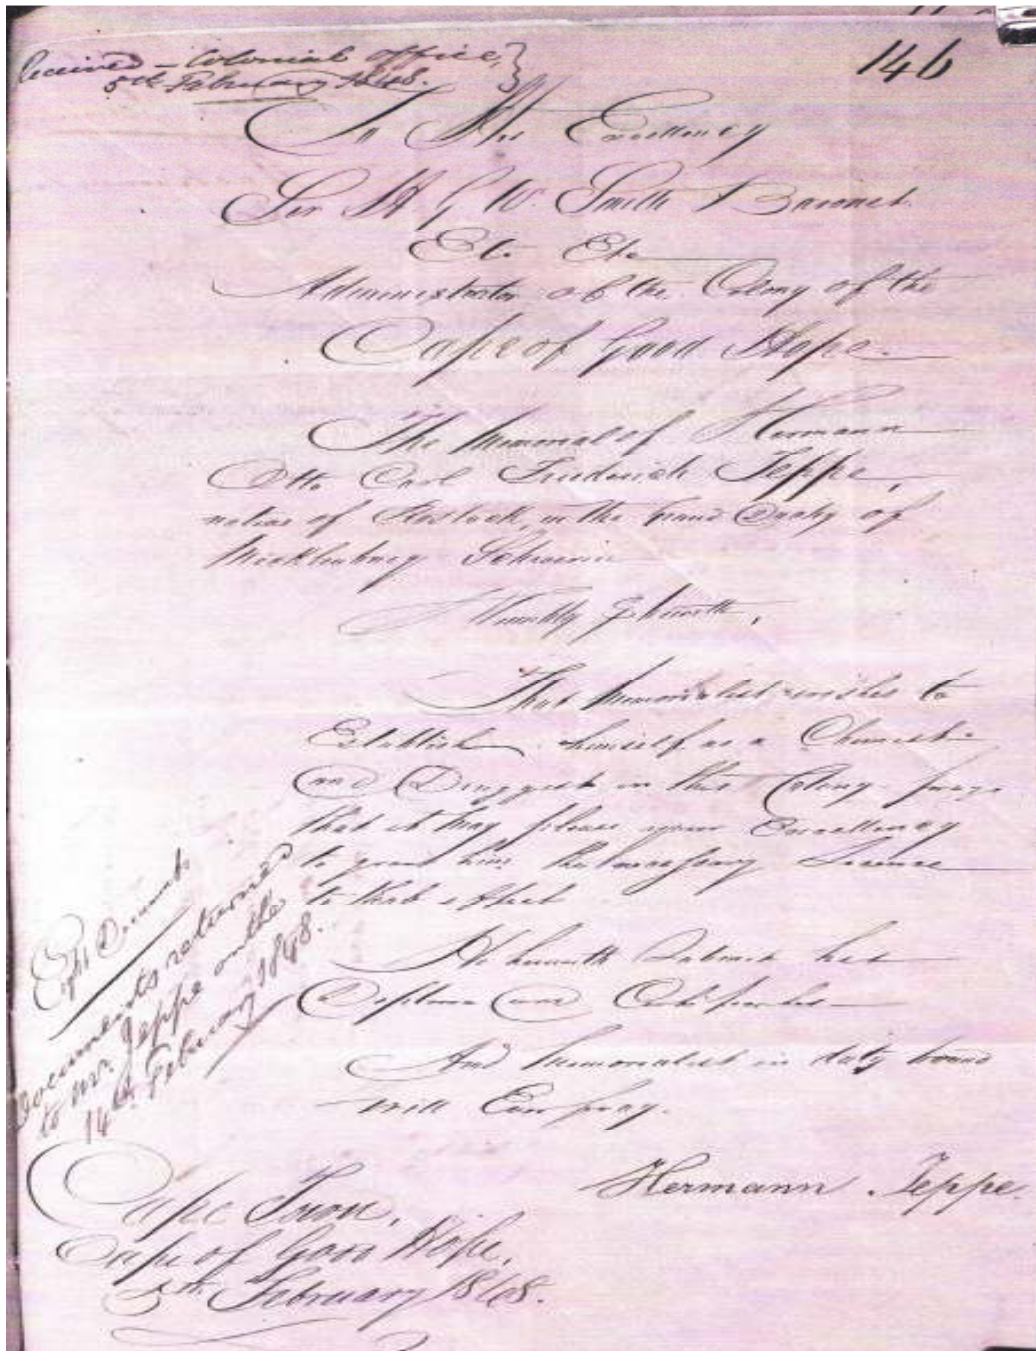 Received – Colonial Office,
5th February 1848.
146
To His Excellency
Sir H G W. Smith Baronet.
Etc Etc
Administrator of the Colony of the
Cape of Good Hope.
The Memorial of Hermann
Otto Carl Friederich Jeppe,
native of Rostock, in the Grand Duchy of
Mecklenburg Schwerin
Humbly Sheweth,
That Memorialist wishes to
Establish himself as a Chemist
and Druggist in this Colony prays
that it may please your Excellency
to grant him the necessary License
to that effect
He herewith Submits his
Diploma and Certificates
And Memorialist in duty bound
will Ever pray.
Eight Documents
Documents returned
to Mr. Jeppe on the
14th February 1848.
Hermann Jeppe.
Cape Town,
Cape of Good Hope,
5th February 1848.